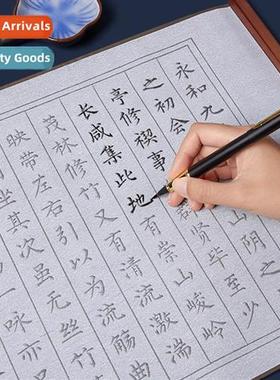 Arrivals
ty Goods
永和九
之初会
阴
亭修禊事
群贤毕至少
长咸集此地
有崇山峻岭
茂林修竹又有清流激湍
映带左右引以为流觞曲
坐其次虽无丝竹
咏亦